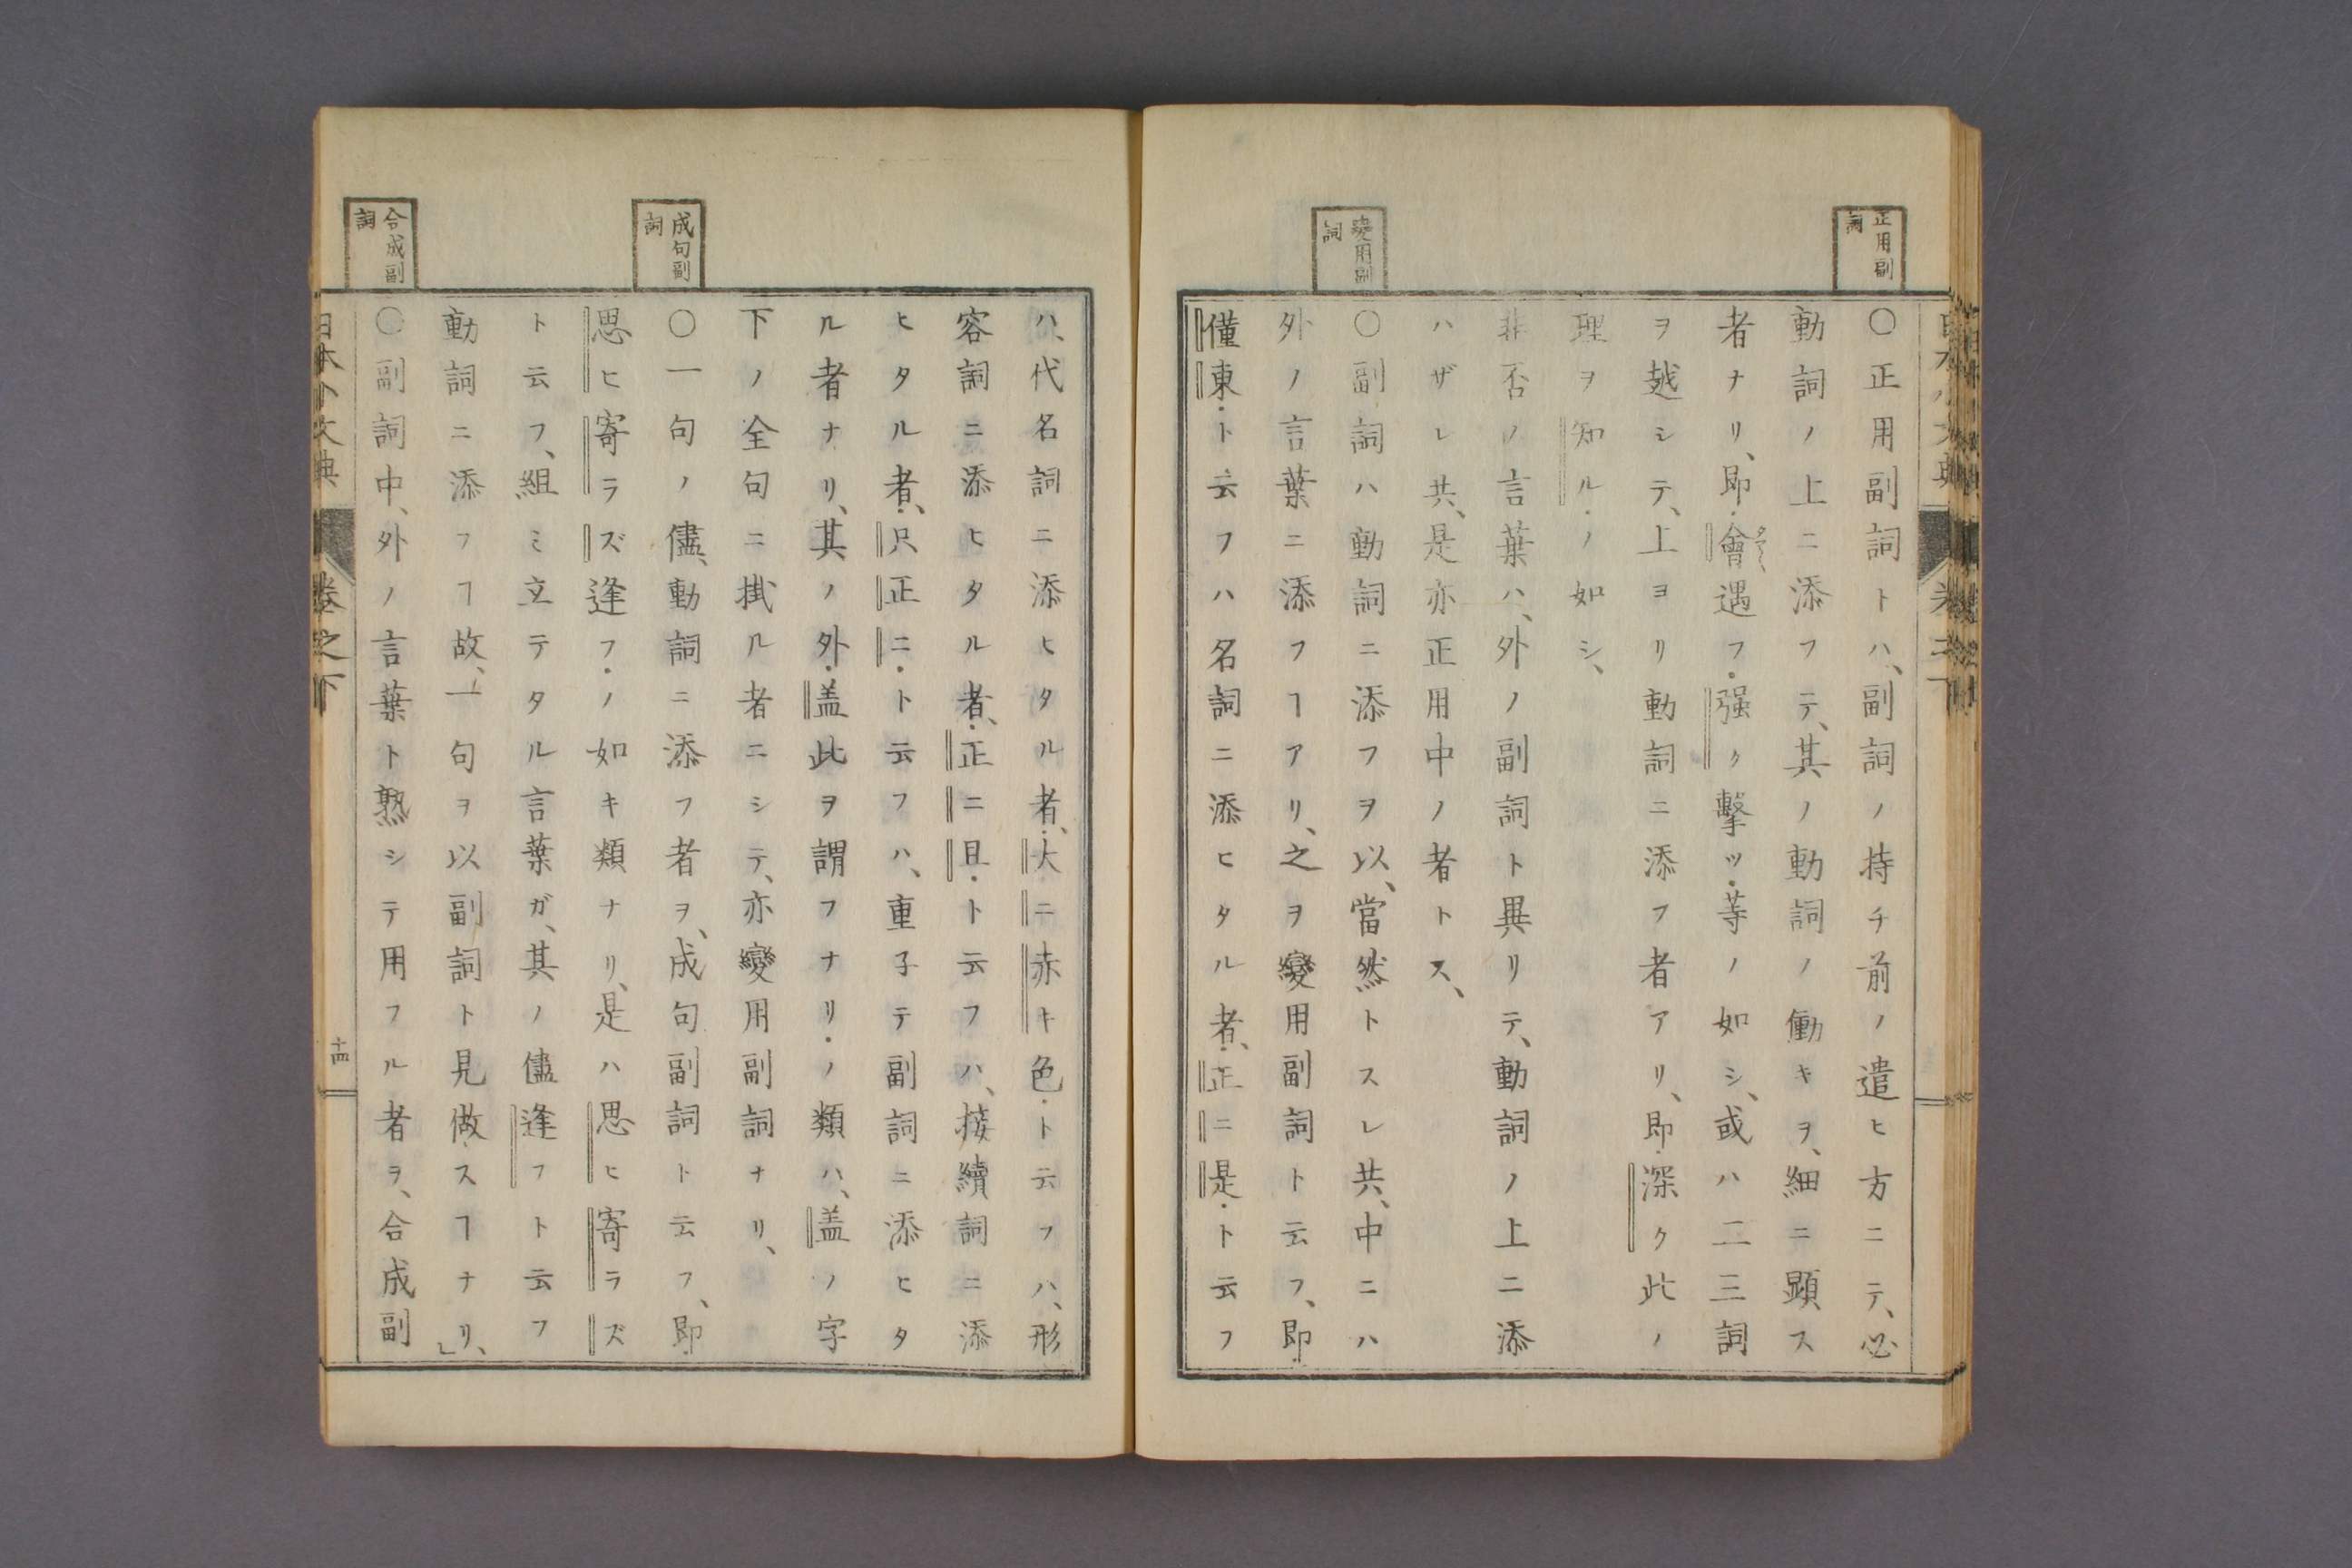 正用副
詞
〇正用副詞トハ、副詞ノ持チ前ノ遣ヒ方ニテ、必
動詞ノ上ニ添フテ、其ノ動詞ノ働キヲ、細ニ顕ス
者ナリ、即會遇フ・强ク擊ツ・等ノ如シ、或ハ二三詞
ヲ越シテ、上ヨリ動詞ニ添フ者アリ、即深ク此ノ
理ヲ知ル・ノ如シ、
非否ノ言葉ハ、外ノ副詞ト異リテ、動詞ノ上ニ添
ハザレ共、是亦正用中ノ者トス、
變用副
詞
〇副詞ハ動詞ニ添フヲ以、當然トスレ共、中ニハ
外ノ言葉ニ添フヿアリ、之ヲ變用副詞ト云フ、即
僅東・ト云フハ名詞ニ添ヒタル者、正ニ是・ト云フ
ハ、代名詞ニ添ヒタル者、大ニ赤キ色・ト云フハ、形
容詞ニ添ヒタル者、正ニ且・ト云フハ、接續詞ニ添
ヒタル者、只正ニ・ト云フハ、重子テ副詞ニ添ヒタ
ル者ナリ、其ノ外・盖此ヲ謂フナリ・ノ類ハ、盖ノ字
下ノ全句ニ掛ル者ニシテ、亦變用副詞ナリ、
成句副
詞
〇一句ノ儘、動詞ニ添フ者ヲ、成句副詞ト云フ、即
思ヒ寄ラズ逢フ・ノ如キ類ナリ、是ハ思ヒ寄ラズ
ト云フ、組ミ立テタル言葉ガ、其ノ儘逢フト云フ
動詞ニ添フヿ故、一句ヲ以副詞ト見做スヿナリ、」
合成副
詞
〇副詞中、外ノ言葉ト熟シテ用フル者ヲ、合成副
日本小文典 卷之下 十四